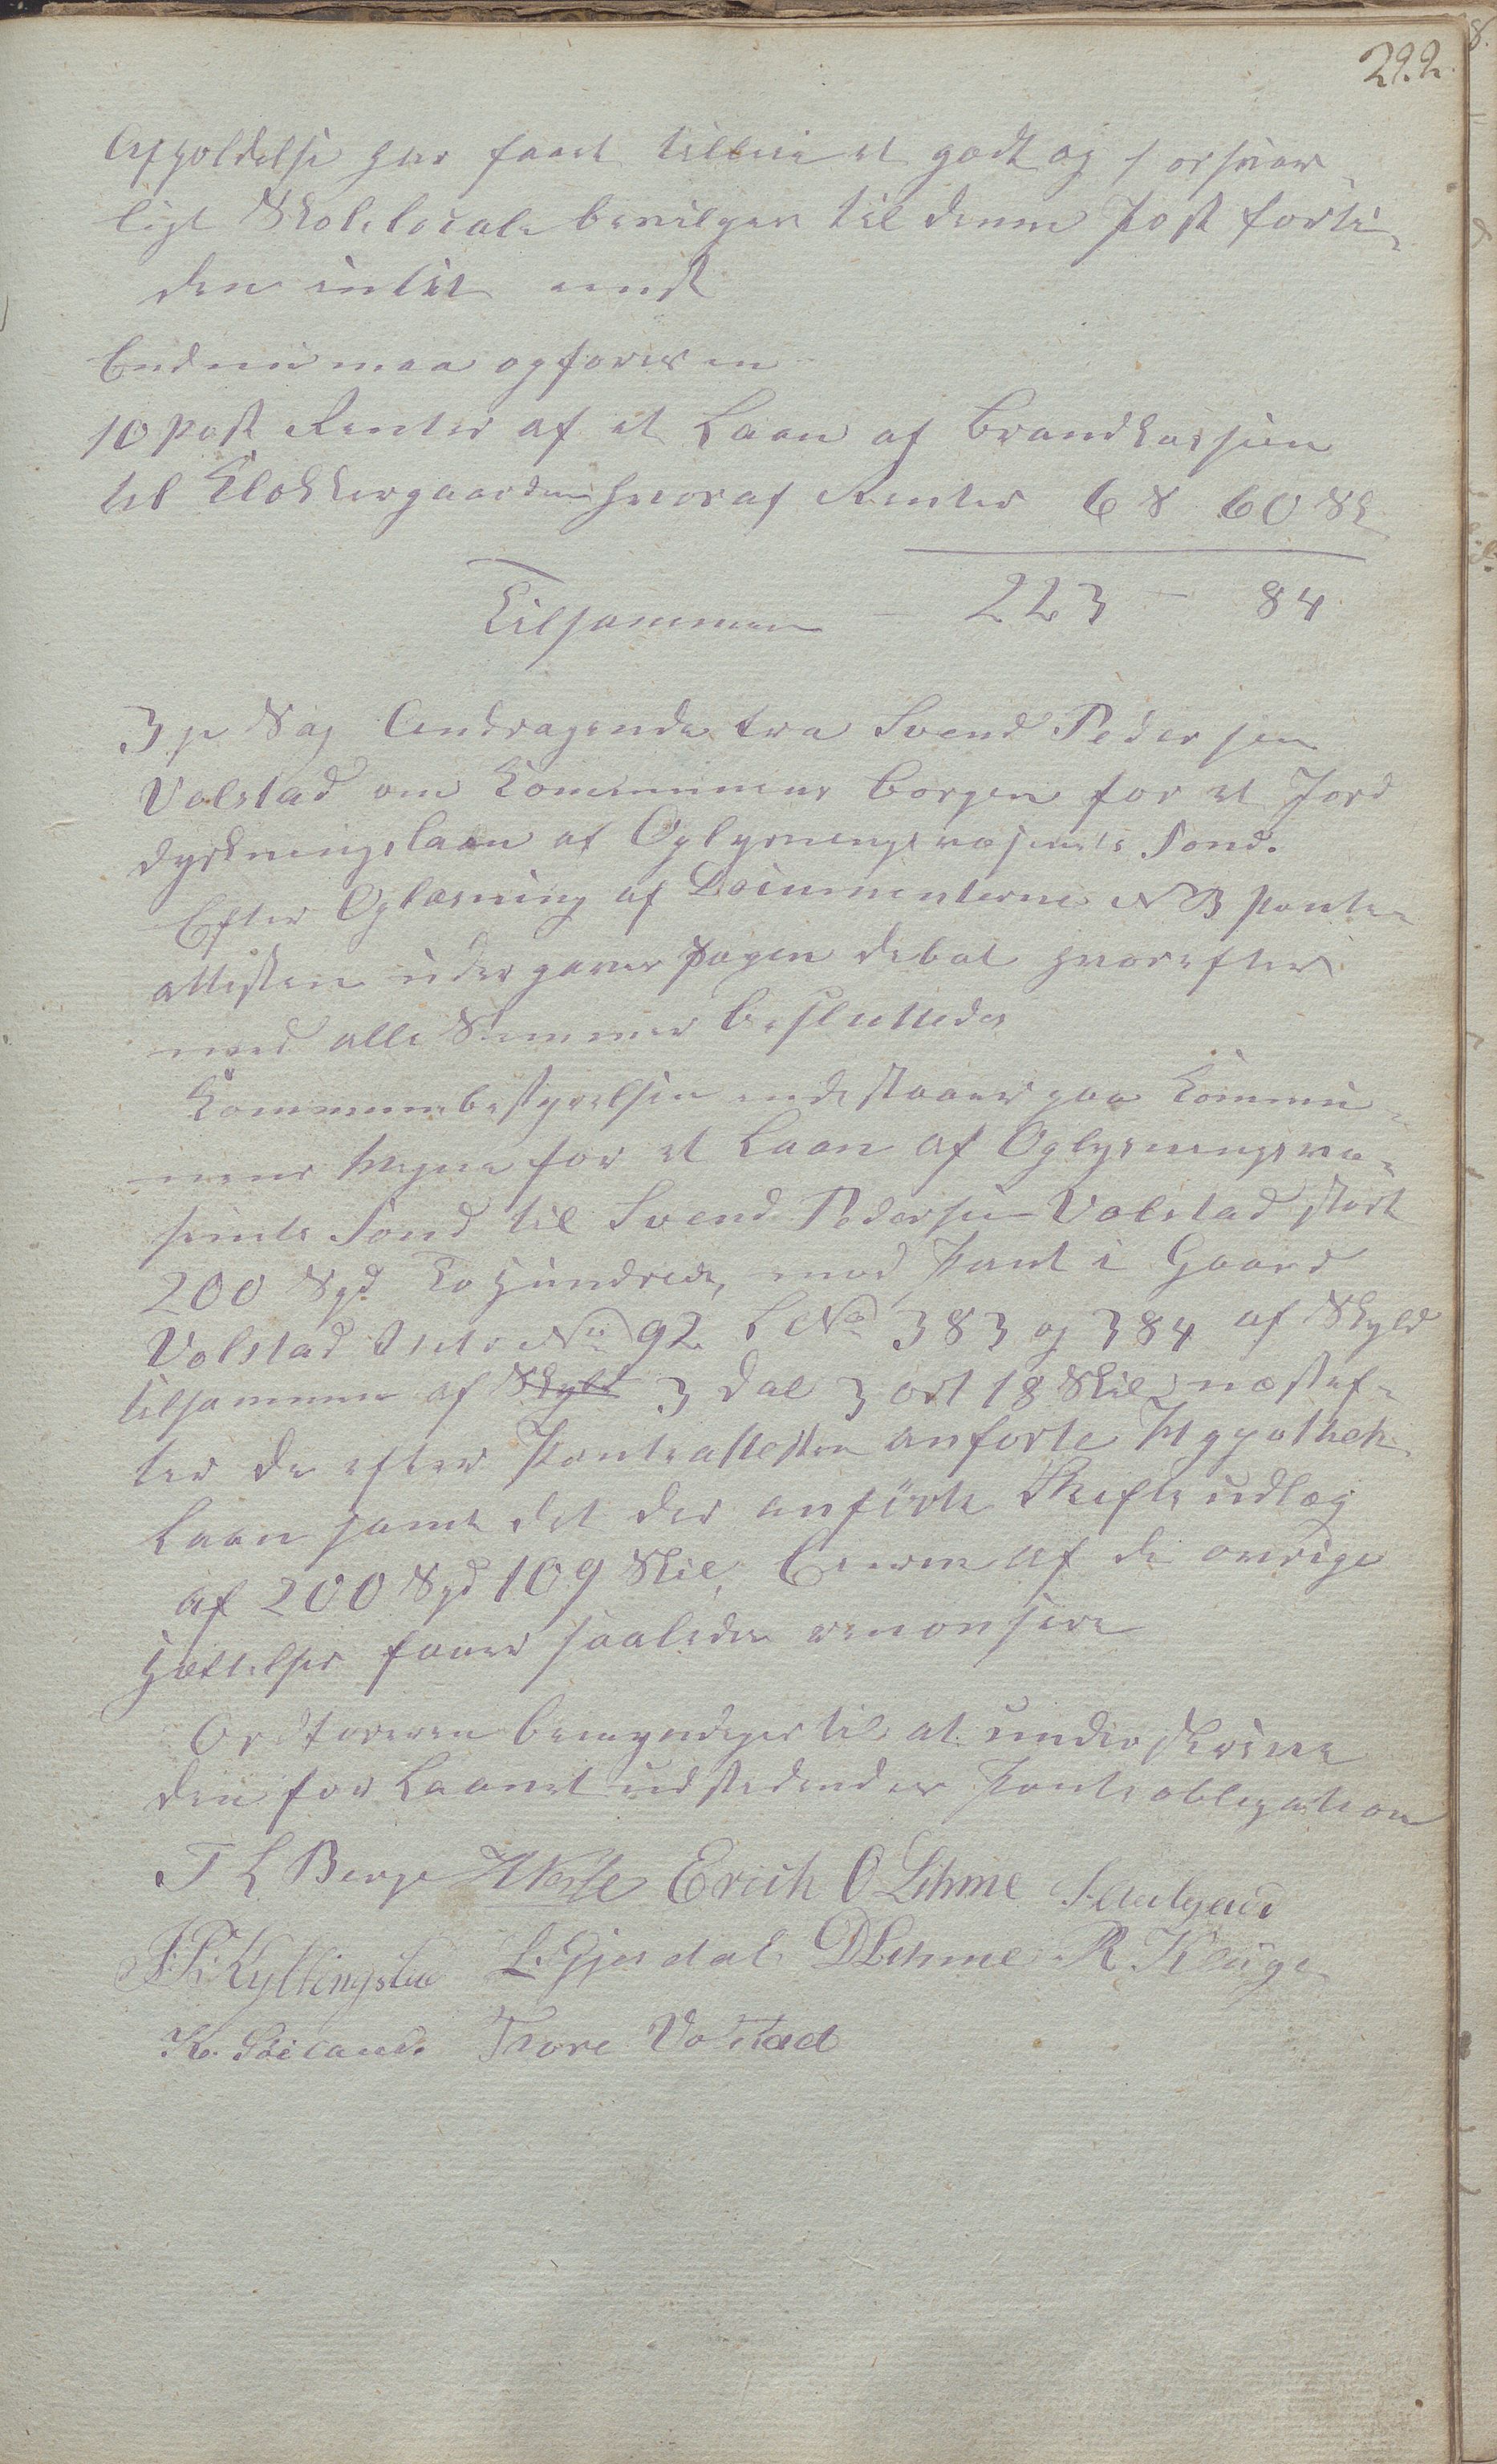 292.
Afholdelse har faaet tilleiet godt og forsvar-
ligt Skolelocale bevilges til denne Post forti-
den intet midt
Endnu maa opføres en
10 Post Renter af et Laan af Brandkassen
til Klokkergaarden hvoraf Renter 6 S 60 Sk
Tilsammen - 223 - 84
3je Sag Andragende fra Svend Pedersen
Valstad om Kommunens Borgen for et Jord
dyrkningslaan af Oplysningsvæsenets Fond.
Efter Oplæsning af Documenterne NB Pante-
attesten undergaves Sagen debat hvorefter
med alle Stemmer besluttedes
Kommunebestyrelsen indestaaer paa Kommu-
nens Vegne for et Laan af Oplysningsvæ-
senets Fond til Svend Pedersen Valstad stort
200 Spd To Hundrede, mod Pant i Gaard
Volstad Matr No 92 L No 383 og 384 af Skyld
tilsammen af Skyld 3 Dal 3 ort 18 Skil næstef-
ter de efter Panteattesten anførte Hypothek
Laan samt det der anførte Skifteudlæg
af 200 Spd 109 Skil, Eieren af de øvrige
Hæftelser faaer saaledes renonsere
Ordføreren bemyndiges til at underskrive
den for Laanet udstedendes Panteobligation
T L Berge Erich O Lihme
Kyllingstad L. Gjesdal D Lihme R. Kluge
K. Søiland. Tore Volstad